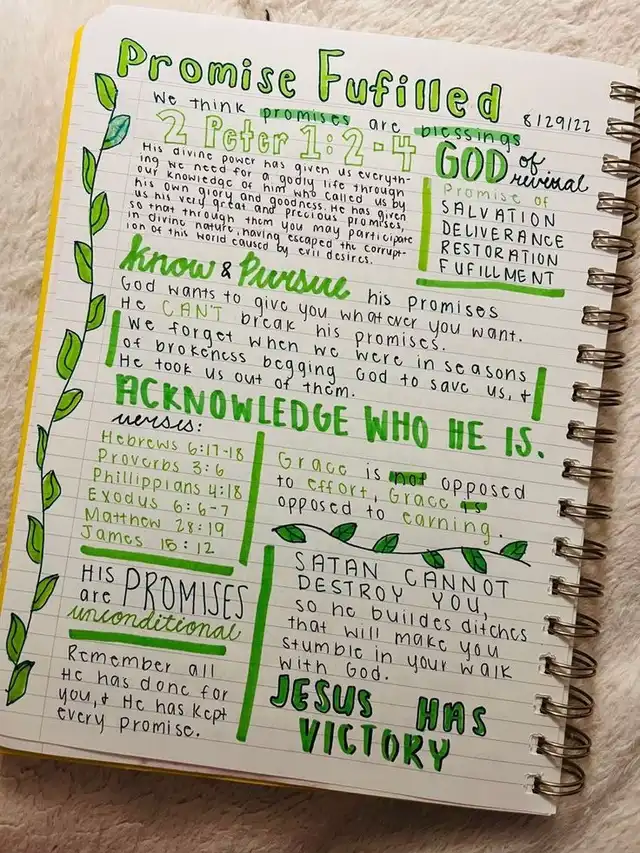 Promise Fufilled
8/29/22
We think promises are blessings
2 Peter 1:2-4
His divine power has given us everyth-
ing we need for a godly life through
our knowledge of him who called us by
his own glory and goodness. He has given
us his very great and precious promises,
so that through them you may participate
in divine nature, having escaped the corrupt-
ion of this world caused by evil desires.
GOD of
revival
Promise of
SALVATION
DELIVERANCE
RESTORATION
FUFILLMENT
Know & Pursue his promises
God wants to give you whatever you want.
He CAN'T break his promises.
We forget when we were in seasons
of brokeness begging God to save us, +
He took us out of them.
ACKNOWLEDGE WHO HE IS.
verses:
Hebrews 6:17-18
Proverbs 3:6
Phillippians 4:18
Exodus 6:6-7
Matthew 28:19
James 15:12
Grace is not opposed
to effort, Grace is
opposed to earning.
HIS PROMISES
are
unconditional
Remember all
He has done for
you, + He has kept
every promise.
SATAN CANNOT
DESTROY YOU,
so he buildes ditches
that will make you
stumble in your walk
with God.
JESUS HAS
VICTORY